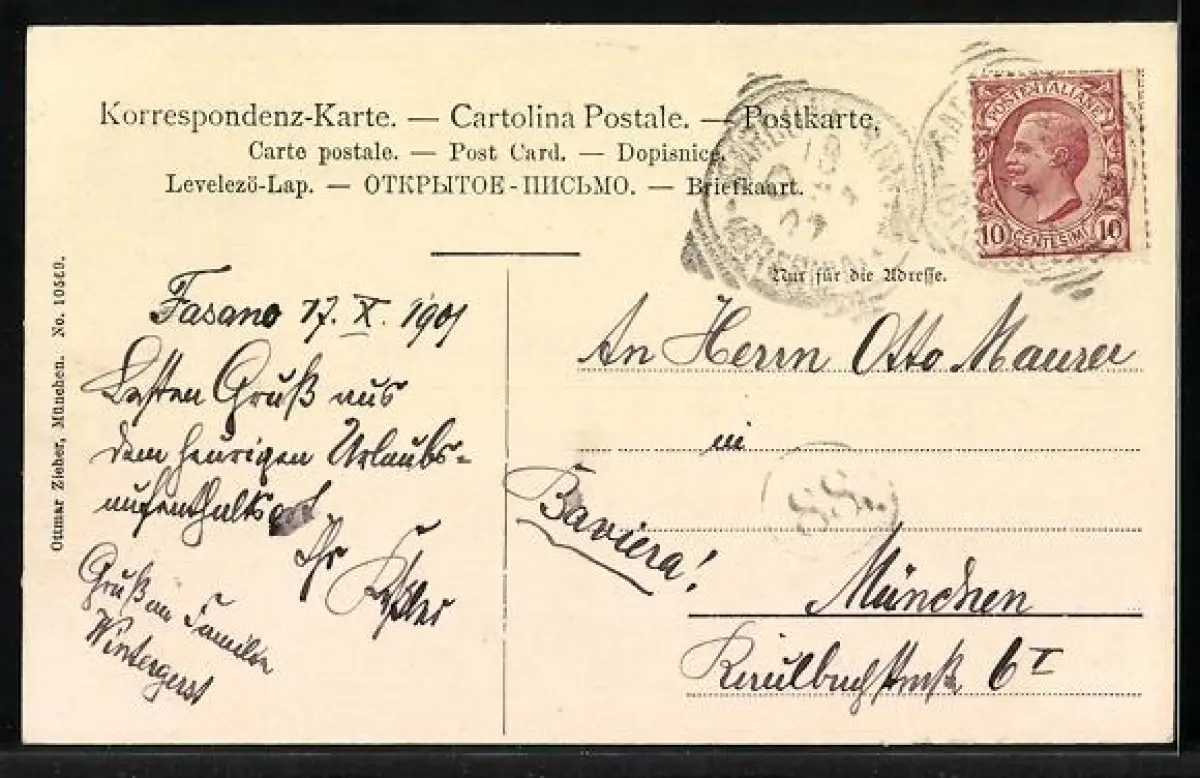 Korrespondenz-Karte. — Cartolina Postale. — Postkarte.
Carte postale. — Post Card. — Dopisnice.
Levelező-Lap. — ОТКРЫТОЕ-ПИСЬМО. — Briefkaart.
POSTE ITALIANE
10 CENTESIMI 10
Nur für die Adresse.
Ottmar Zieher, München. No. 10569.
Fasano 17. X. 1907
Besten Gruß aus
dem heurigen Urlaubs-
aufenthaltsort.
Ihr
Gruß an Familie
Wintergerst
An Herrn Otto Maurer
in
Baviera!
München
6 I